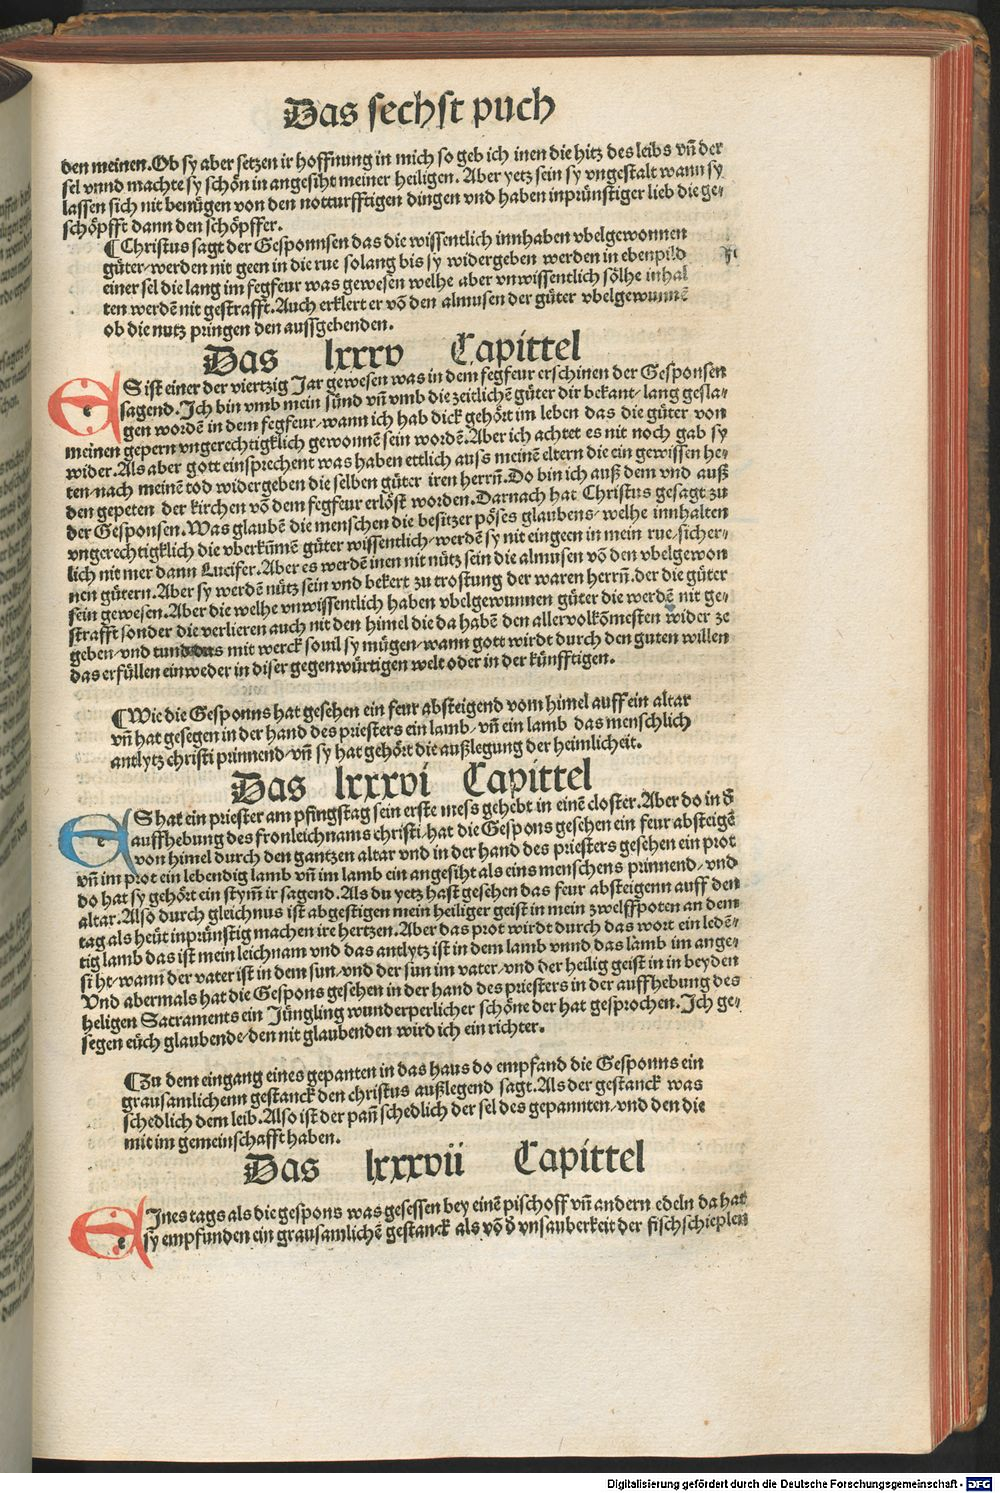 Das sechst puch
den meinen. Ob sy aber setzen ir hoffnung in mich so geb ich inen die hitz des leibs vñ der
sel vnnd machte sy schön in angesiht meiner heiligen. Aber yetz sein sy vngestalt wann sy
lassen sich nit benügen von den notturfftigen dingen vnd haben inprünstiger lieb die ge⸗
schöpfft dann den schöpffer.
¶ Christus sagt der Gesponnsen das die wissentlich innhaben vbelgewonnen
güter/werden nit geen in die rue solang bis sy widergeben werden in ebenpild
einer sel die lang im fegfeur was gewesen welhe aber vnwissentlich sölhe inhal
ten werdē nit gestrafft. Auch erklert er vō den almusen der güter vbelgewunnē
ob die nutz pringen den aussgebenden.
Das lxxxv Capittel
ES ist einer der viertzig Jar gewesen was in dem fegfeur erschinen der Gesponsen
sagend. Ich bin vmb mein sünd vñ vmb die zeitlichē güter dir bekant/ lang gesla⸗
gen wordē in dem fegfeur/wann ich hab dick gehört im leben das die güter von
meinen gepern vngerechtigklich gewonnē sein wordē. Aber ich achtet es nit noch gab sy
wider. Als aber gott einsprechent was haben ettlich auss meinē eltern die ein gewissen he⸗
ten/nach meinē tod widergeben die selben güter iren herrñ. Do bin ich auß dem vnd auß
den gepeten der kirchen vō dem fegfeur erlöst worden. Darnach hat Christus gesagt zu
der Gesponsen. Was glaubē die menschen die besitzer pöses glaubens/ welhe innhalten
vngerechtigklich die vberkūmē güter wissentlich/werdē sy nit eingeen in mein rue/sicher⸗
lich nit mer dann Lucifer. Aber es werdē inen nit nütz sein die almusen vō den vbelgewon
nen gütern. Aber sy werdē nütz sein vnd bekert zu trostung der waren herrñ. der die güter
sein gewesen. Aber die welhe vnwissentlich haben vbelgewunnen güter die werdē nit ge⸗
strafft sonder die verlieren auch nit den himel die da habē den allervolkōmesten wider ze
geben/vnd tund das mit werck souil sy mügen/wann gott wirdt durch den guten willen
das erfüllen ein weder in diser gegenwürtigen welt oder in der künfftigen.
¶ Wie die Gesponns hat gesehen ein feur absteigend vom himel auff ein altar
vñ hat gesegen in der hand des priesters ein lamb/ vñ ein lamb das menschlich
antlytz christi prinnend/vñ sy hat gehört die außlegung der heimlicheit.
Das lxxxvi Capittel
ES hat ein priester am pfingstag sein erste mess gehebt in einē closter. Aber do in d̄
auffhebung des fronleichnams christi/hat die Gespons gesehen ein feur absteigē
von himel durch den gantzen altar vnd in der hand des priesters gesehen ein prot
vñ im prot ein lebendig lamb vñ im lamb ein angesiht als eins menschens prinnend/vnd
do hat sy gehört ein stym̄ ir sagend. Als du yetz hast gesehen das feur absteigenn auff den
altar. Also durch gleichnus ist abgestigen mein heiliger geist in mein zwelffpoten an dem
tag als heüt inprünstig machen ire hertzen. Aber das prot wirdt durch das wort ein lebē⸗
tig lamb das ist mein leichnam vnd das antlytz ist in dem lamb vnnd das lamb im ange⸗
siht/wann der vater ist in dem sun/vnd der sun im vater/vnd der heilig geist in in beyden
Vnd abermals hat die Gespons gesehen in der hand des priesters in der auffhebung des
heligen Sacraments ein Jüngling wunderperlicher schöne der hat gesprochen. Ich ge⸗
segen eüch glaubende/den nit glaubenden wird ich ein richter.
¶ Zu dem eingang eines gepanten in das haus do empfand die Gesponns ein
grausamlichenn gestanck den christus außlegend sagt. Als der gestanck was
schedlich dem leib. Also ist der pañ schedlich der sel des gepannten/vnd den die
mit im gemeinschafft haben.
Das lxxxvii Capittel
EInes tags als die gespons was gesessen bey einē pischoff vñ andern edeln da hat
sy empfunden ein grausamlichē gestanck als vō d̄ vnsauberkeit der fischschieplen
Digitalisierung gefördert durch die Deutsche Forschungsgemeinschaft - DFG